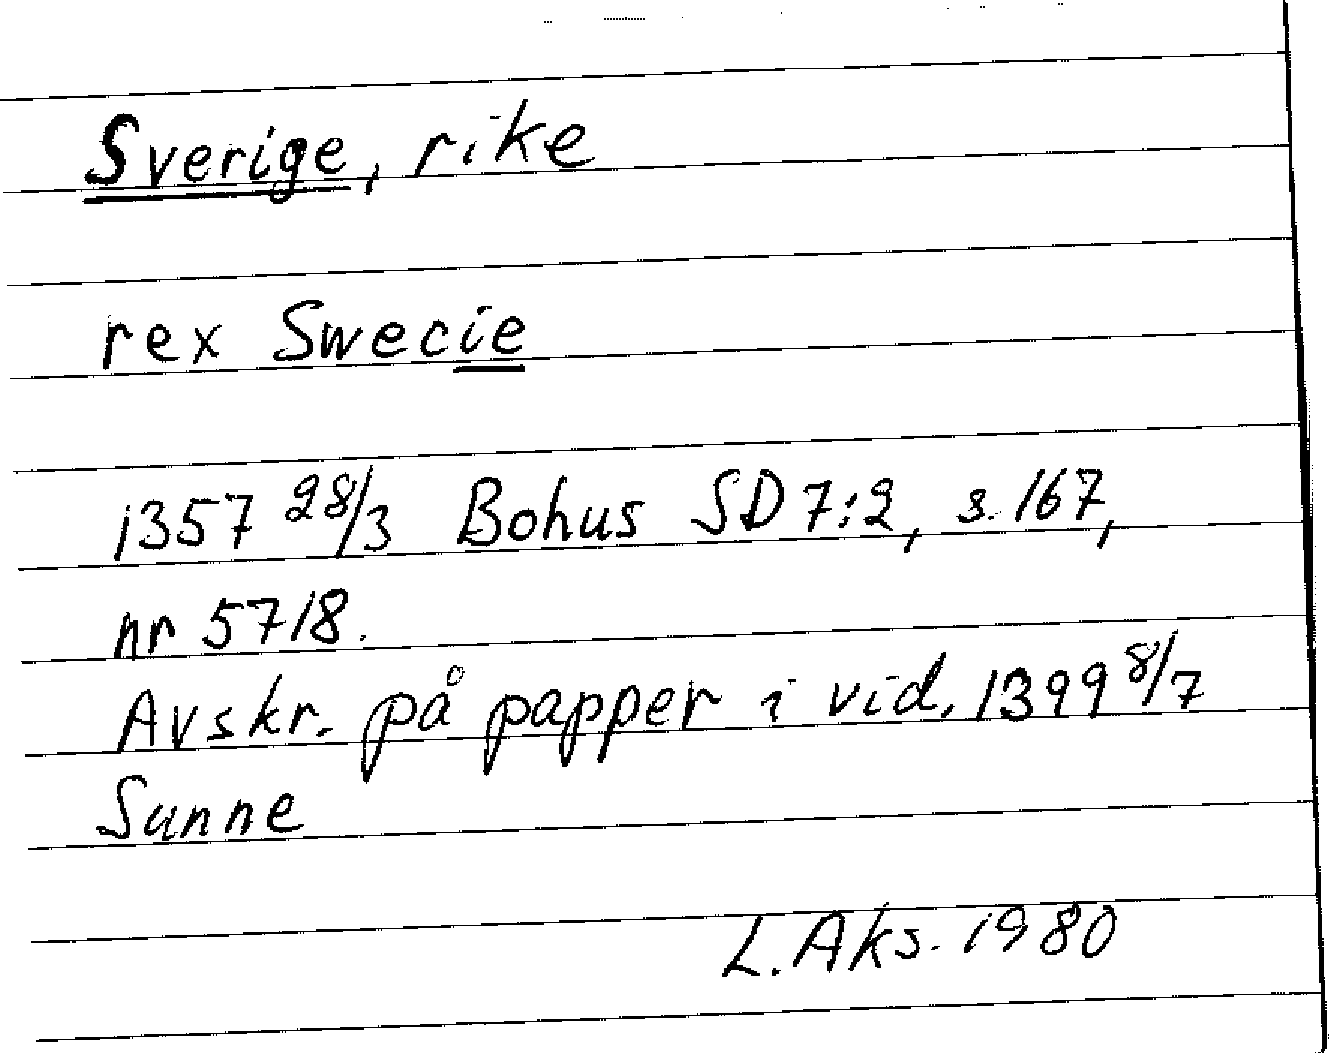 Sverige, rike
rex Swecie
1357 28/3 Bohus SD 7:2, s. 167,
nr 5718.
Avskr. på papper i vid. 1399 8/7
Sunne
L. Aks. 1980